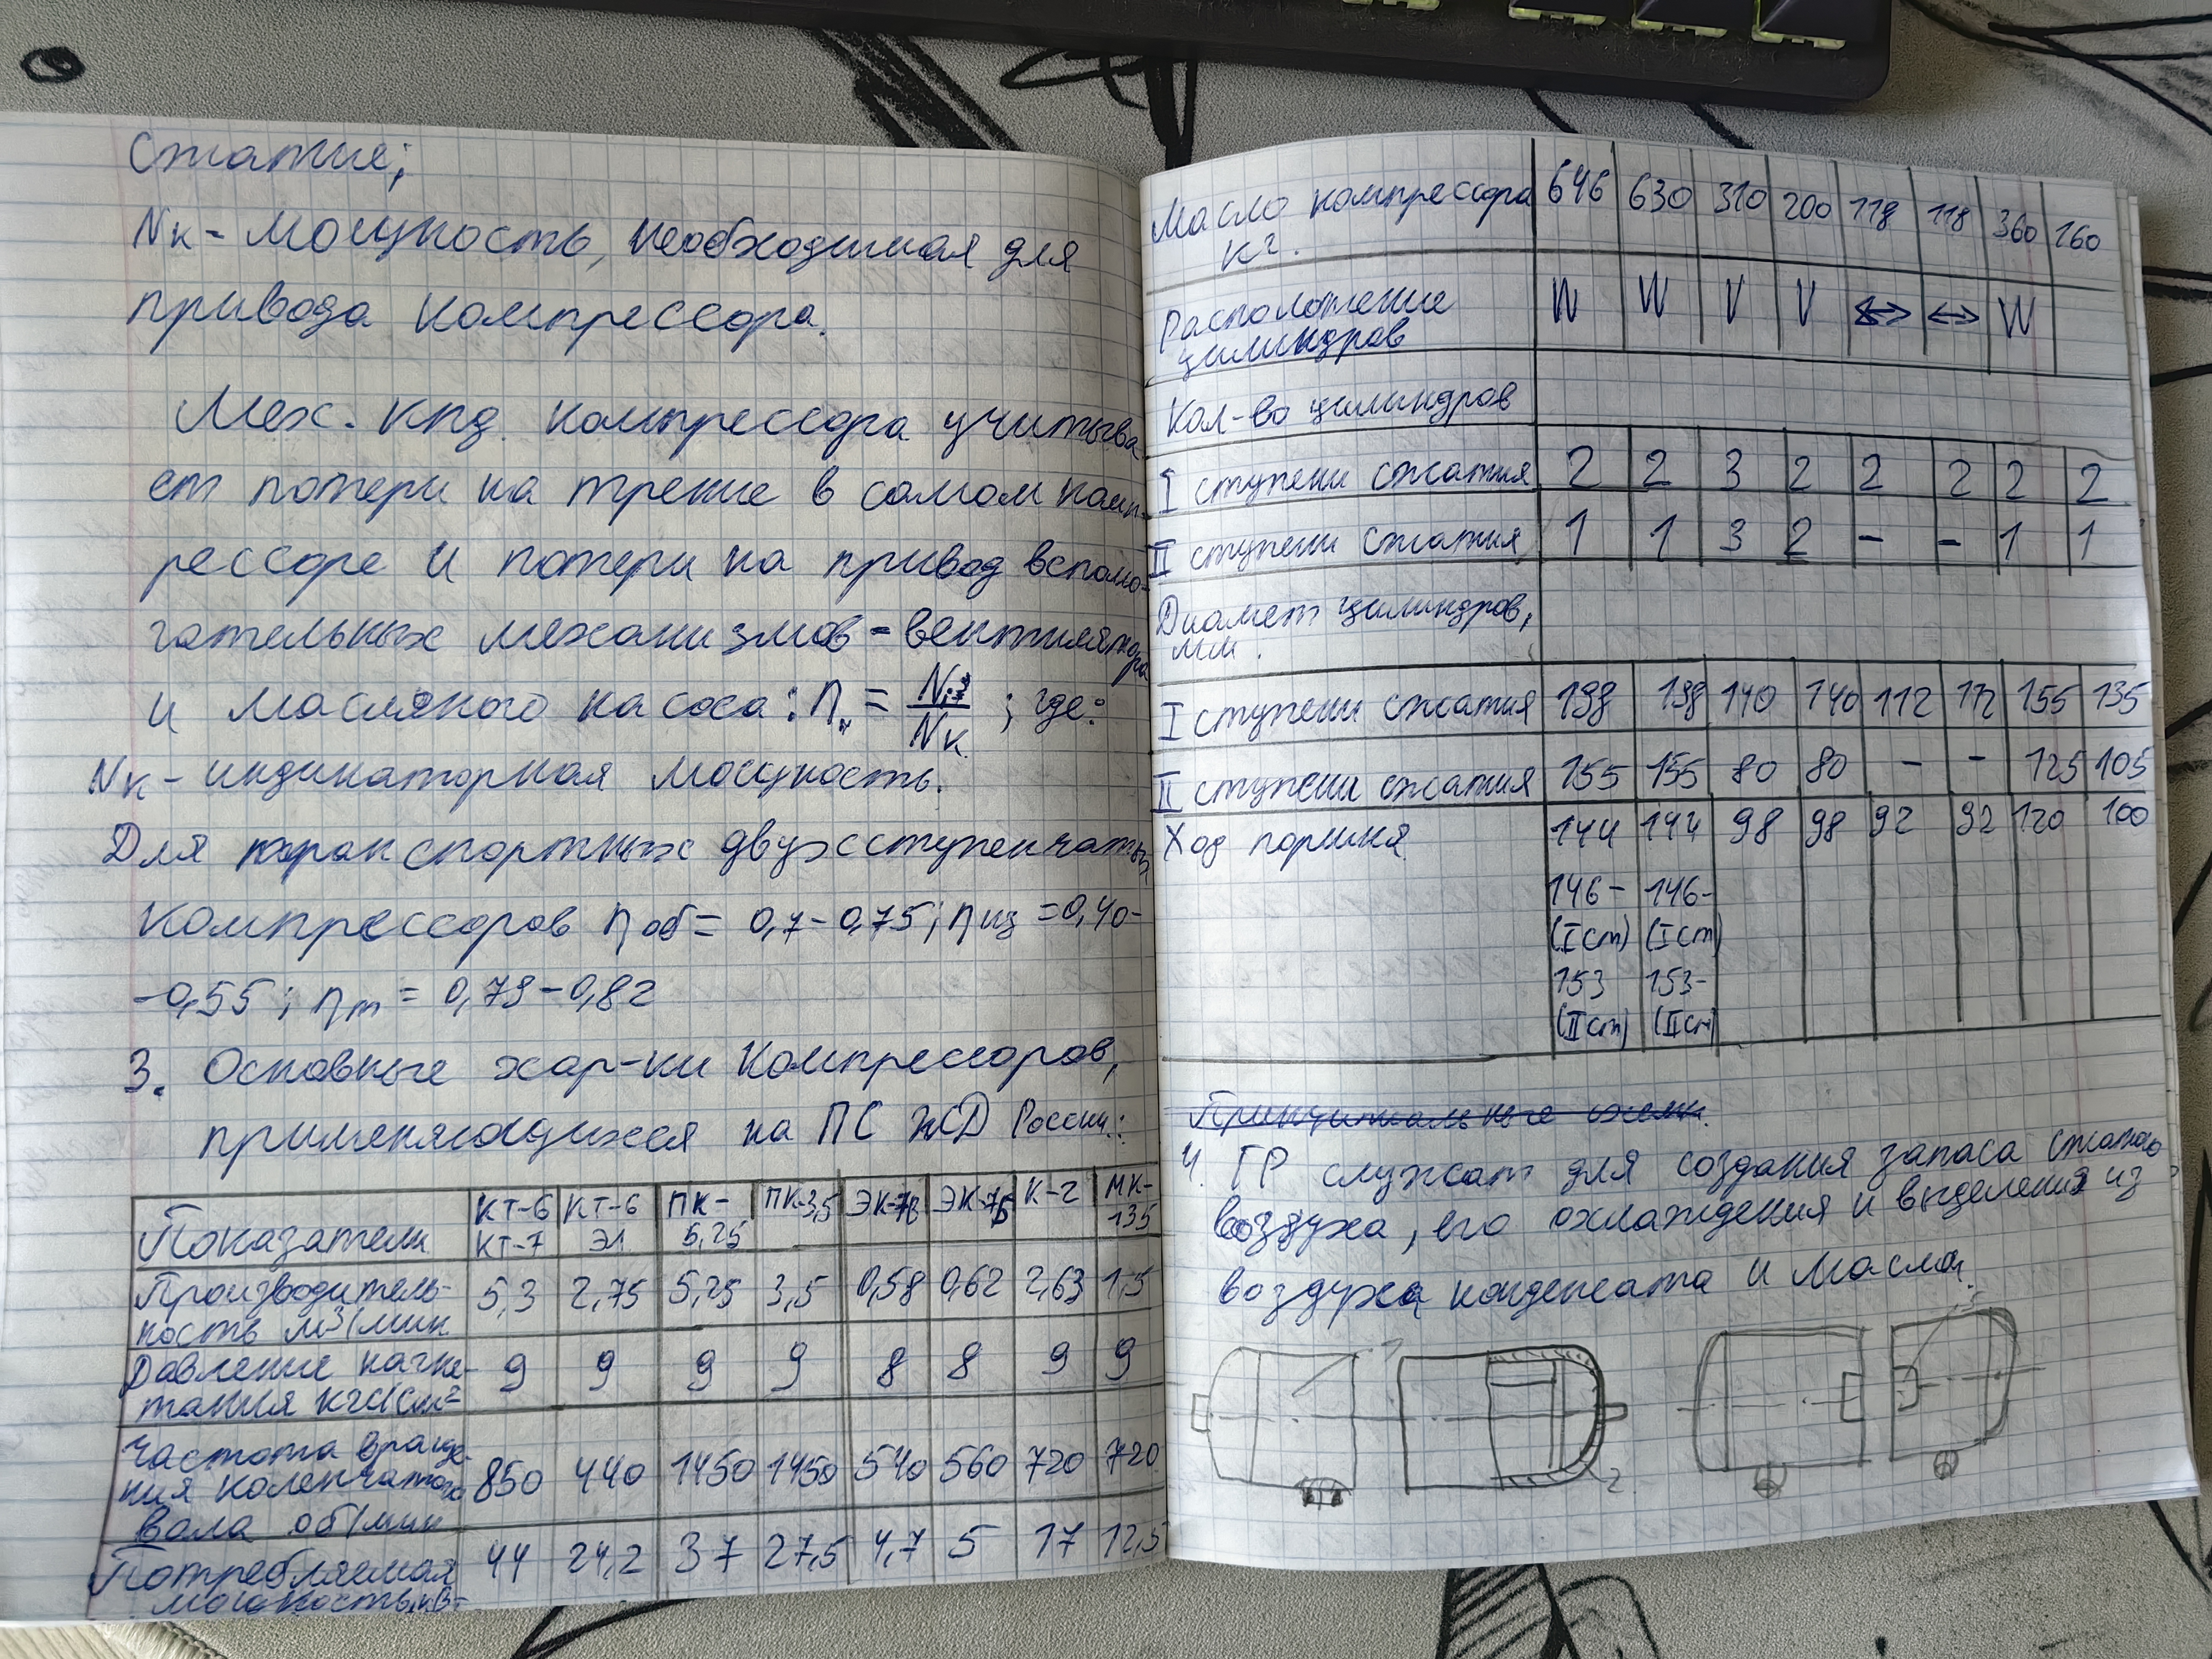 сжатие;
Nк - мощность, необходимая для
привода компрессора.
Мех. кпд. компрессора учитыва
ет потери на трение в самом комп-
рессоре и потери на привод вспомо-
гательных механизмов - вентилятора
и масляного насоса: η = Nиз/Nк ; где:
Nк - индикаторная мощность.
Для транспортных двухступенчатых
компрессоров ηоб = 0,7-0,75; ηиз = 0,40-
-0,55; ηm = 0,79-0,82
3. Основные хар-ки компрессоров,
применяющихся на ПС ЖД России:
Показатели КТ-6 КТ-7 КТ-6 Эл ПК-5,25 ПК-3,5 ЭК-7В ЭК-7Б К-2 МК-135
Производитель-
ность м³/мин 5,3 2,75 5,25 3,5 0,58 0,62 2,63 1,5
Давление нагне-
тания кгс/см² 9 9 9 9 8 8 9 9
Частота враще-
ния коленчатого 850 440 1450 1450 540 560 720 720
вала об/мин
Потребляемая 44 24,2 37 27,5 4,7 5 17 12,5
мощность кВт
Масло компрессора 646 630 310 200 118 118 360 160
кг.
Расположение W W V V ↔ ↔ W
цилиндров
Кол-во цилиндров
I ступени сжатия 2 2 3 2 2 2 2 2
II ступени сжатия 1 1 3 2 - - 1 1
Диамет цилиндров,
мм.
I ступени сжатия 198 198 140 140 112 112 155 135
II ступени сжатия 155 155 80 80 - - 125 105
Ход поршня 144 144 98 98 92 92 120 100
146- 146-
(I ст) (I ст)
153 153-
(II ст) (II ст)
Принципиальные схемы.
4. ГР служат для создания запаса сжатого
воздуха, его охлаждения и выделения из
воздуха конденсата и масла.
1
2